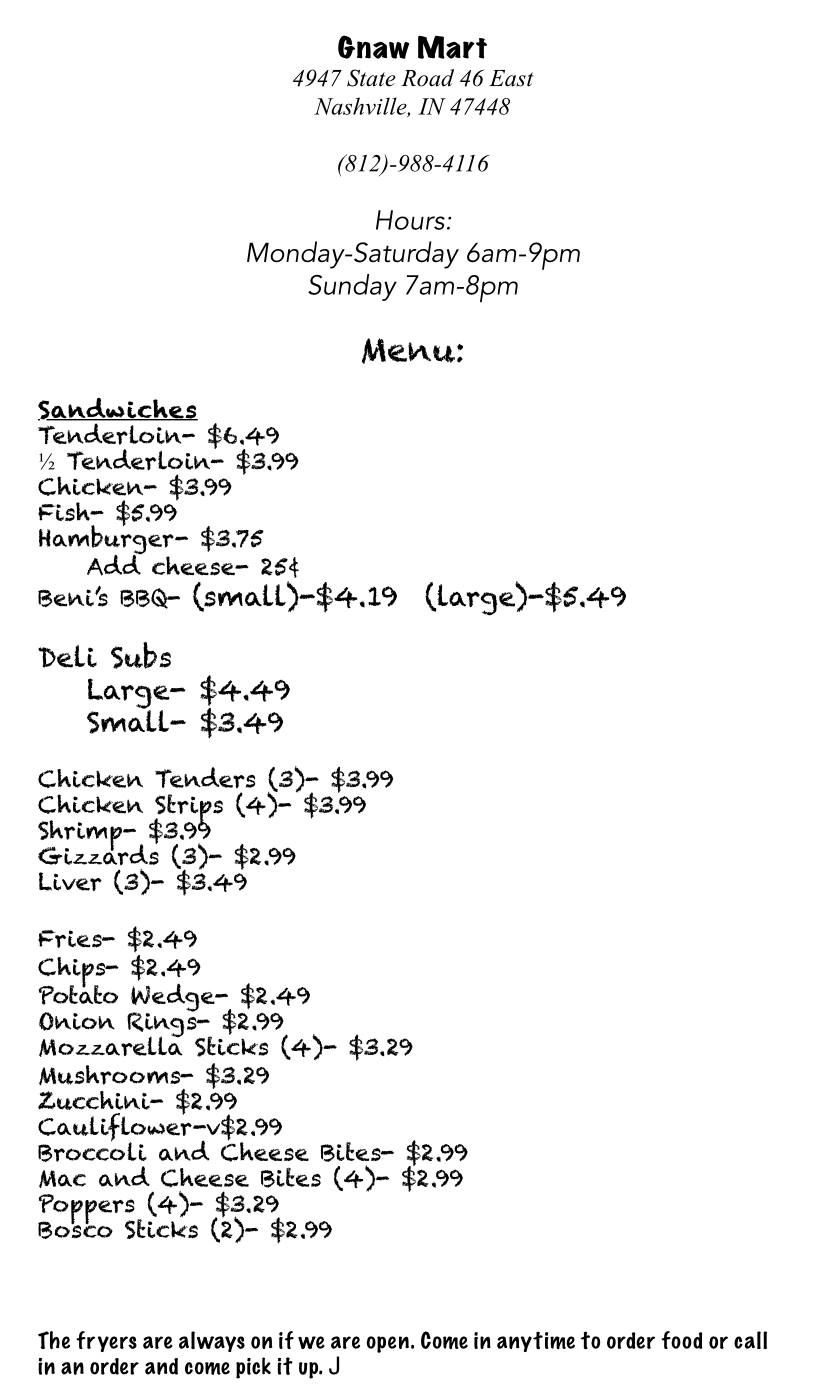 Gnaw Mart
4947 State Road 46 East
Nashville, IN 47448
(812)-988-4116
Hours:
Monday-Saturday 6am-9pm
Sunday 7am-8pm
Menu:
Sandwiches
Tenderloin- $6.49
½ Tenderloin- $3.99
Chicken- $3.99
Fish- $5.99
Hamburger- $3.75
Add cheese- 25¢
Beni's BBQ- (small)-$4.19 (large)-$5.49
Deli Subs
Large- $4.49
Small- $3.49
Chicken Tenders (3)- $3.99
Chicken Strips (4)- $3.99
Shrimp- $3.99
Gizzards (3)- $2.99
Liver (3)- $3.49
Fries- $2.49
Chips- $2.49
Potato Wedge- $2.49
Onion Rings- $2.99
Mozzarella Sticks (4)- $3.29
Mushrooms- $3.29
Zucchini- $2.99
Cauliflower-v$2.99
Broccoli and Cheese Bites- $2.99
Mac and Cheese Bites (4)- $2.99
Poppers (4)- $3.29
Bosco Sticks (2)- $2.99
The fryers are always on if we are open. Come in anytime to order food or call
in an order and come pick it up. J